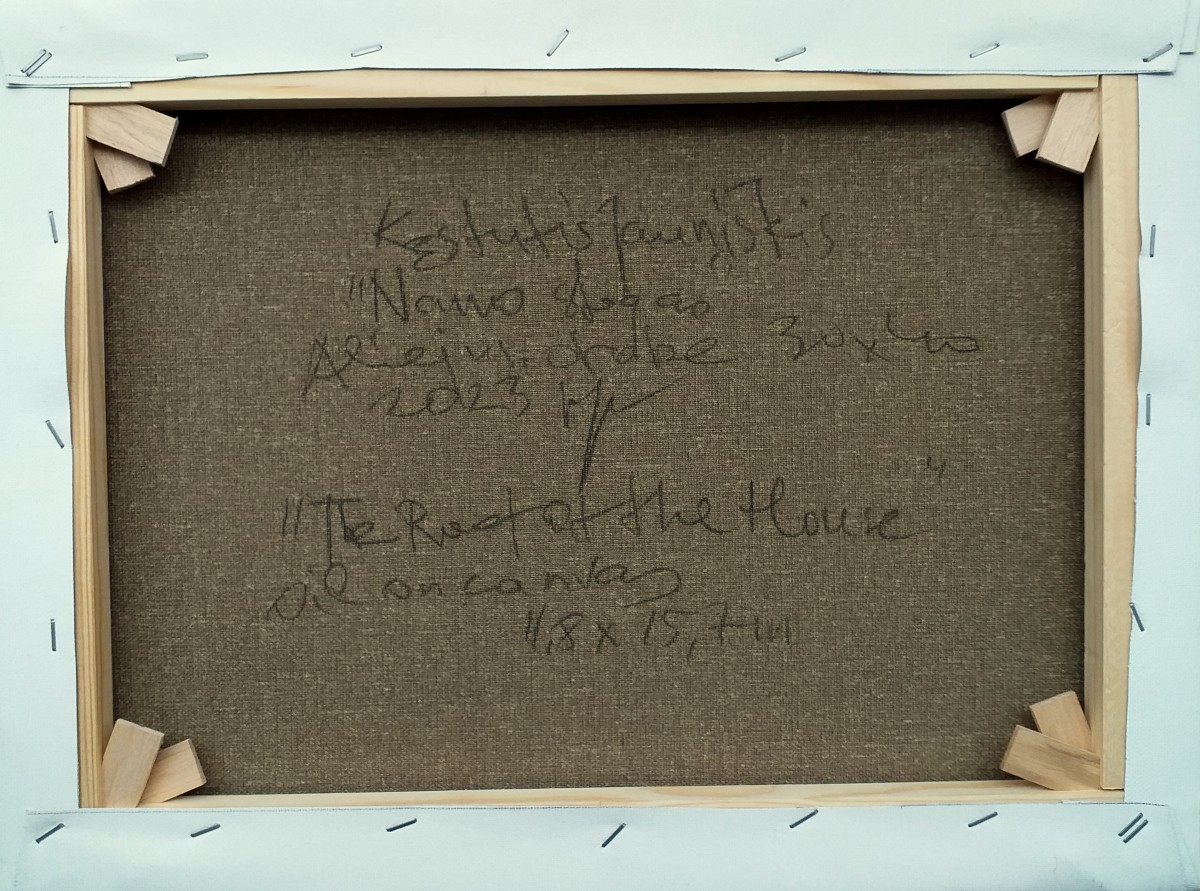 Kęstutis Jauniškis
"Namo stogas
Aliejus, drobė 30x40
2023
"The Roof of the House"
oil on canvas
11,8 x 15,7 in